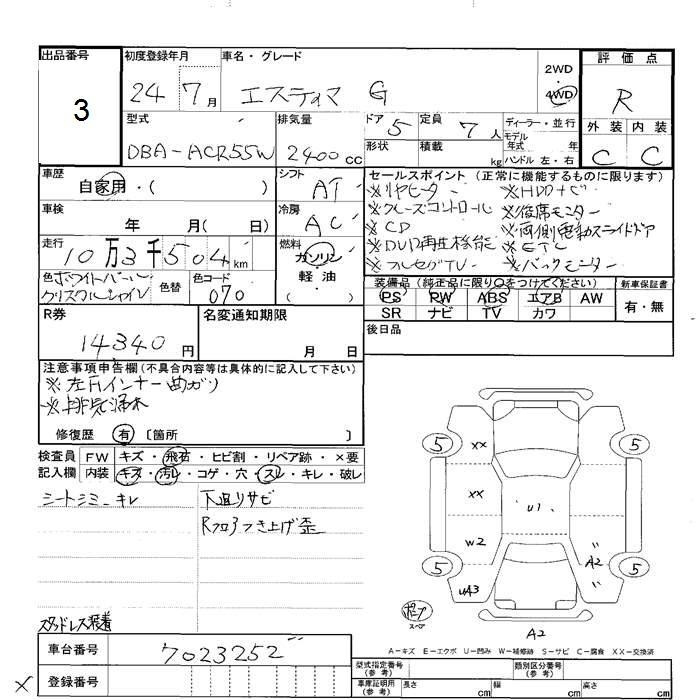 出品番号
3
初度登録年月
24 7月
車名・グレード
エスティマ G
2WD
4WD
評価点
R
外装 内装
C C
型式
DBA-ACR55W
排気量
2400cc
ドア 5
形状
定員 7人
積載 kg
ディーラー・並行
モデル
年式 年
ハンドル 左・右
車歴
自家用・( )
シフト
AT
車検
年 月( 日)
冷房
AC
走行
10万3千504km
燃料
ガソリン
軽・油
( )
色 ホワイトパール
クリスタルシャイン
色替
色コード
070
セールスポイント (正常に機能するものに限ります)
※リヤヒーター ※HDDナビ
※クルーズコントロール ※後席モニター
※CD ※両側電動スライドドア
※DVD再生機能 ※ETC
※フルセグTV ※バックモニター
装備品 (純正品に限り○をつけてください)
PS PW ABS エアB AW
SR ナビ TV カワ
新車保証書
有・無
後日品
R券
14340円
名変通知期限
月 日
注意事項申告欄(不具合内容等は具体的に記入して下さい)
※左右インナー曲ガリ
※排気漏れ
修復歴 有 〔箇所 〕
検査員
記入欄
FW キズ・飛石・ヒビ割・リペア跡・×要
内装 キズ・汚レ・コゲ・穴・スレ・キレ・破レ
シートシミ、キレ
下廻りサビ
Rフロアつき上げ歪
スタッドレス装着
5 XX 5
XX U1
W2 A2
5 UA3 5
スペア
A2
A-キズ E-エクボ U-凹み W-補修跡 S-サビ C-腐食 XX-交換済
車台番号
7023252
登録番号
型式指定番号
(参考)
類別区分番号
(参考)
車庫証明用
(参考)
長さ cm 幅 cm 高さ cm